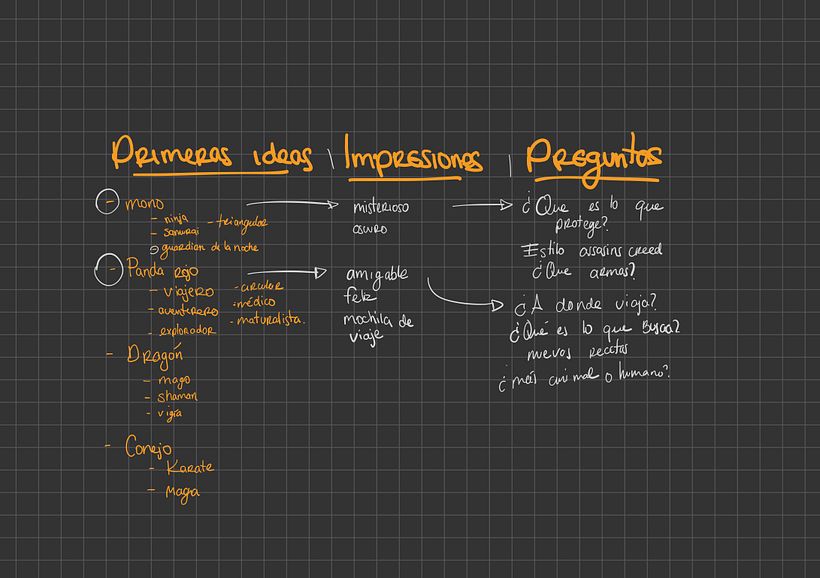 Primeras ideas | Impresiones | Preguntas
- mono
- ninja
- samurai
- triangular
guardian de la noche
misterioso
oscuro
¿Que es lo que
protege?
Estilo assasins creed
¿Que armas?
- Panda rojo
- viajero
- aventurero
- explorador
- circular
- médico
- naturalista.
amigable
feliz
mochila de
viaje
¿A donde viaja?
¿Qué es lo que busca?
nuevas recetas
¿más animal o humano?
- Dragón
- mago
- shaman
- vigía
- Conejo
- Karate
- Magia